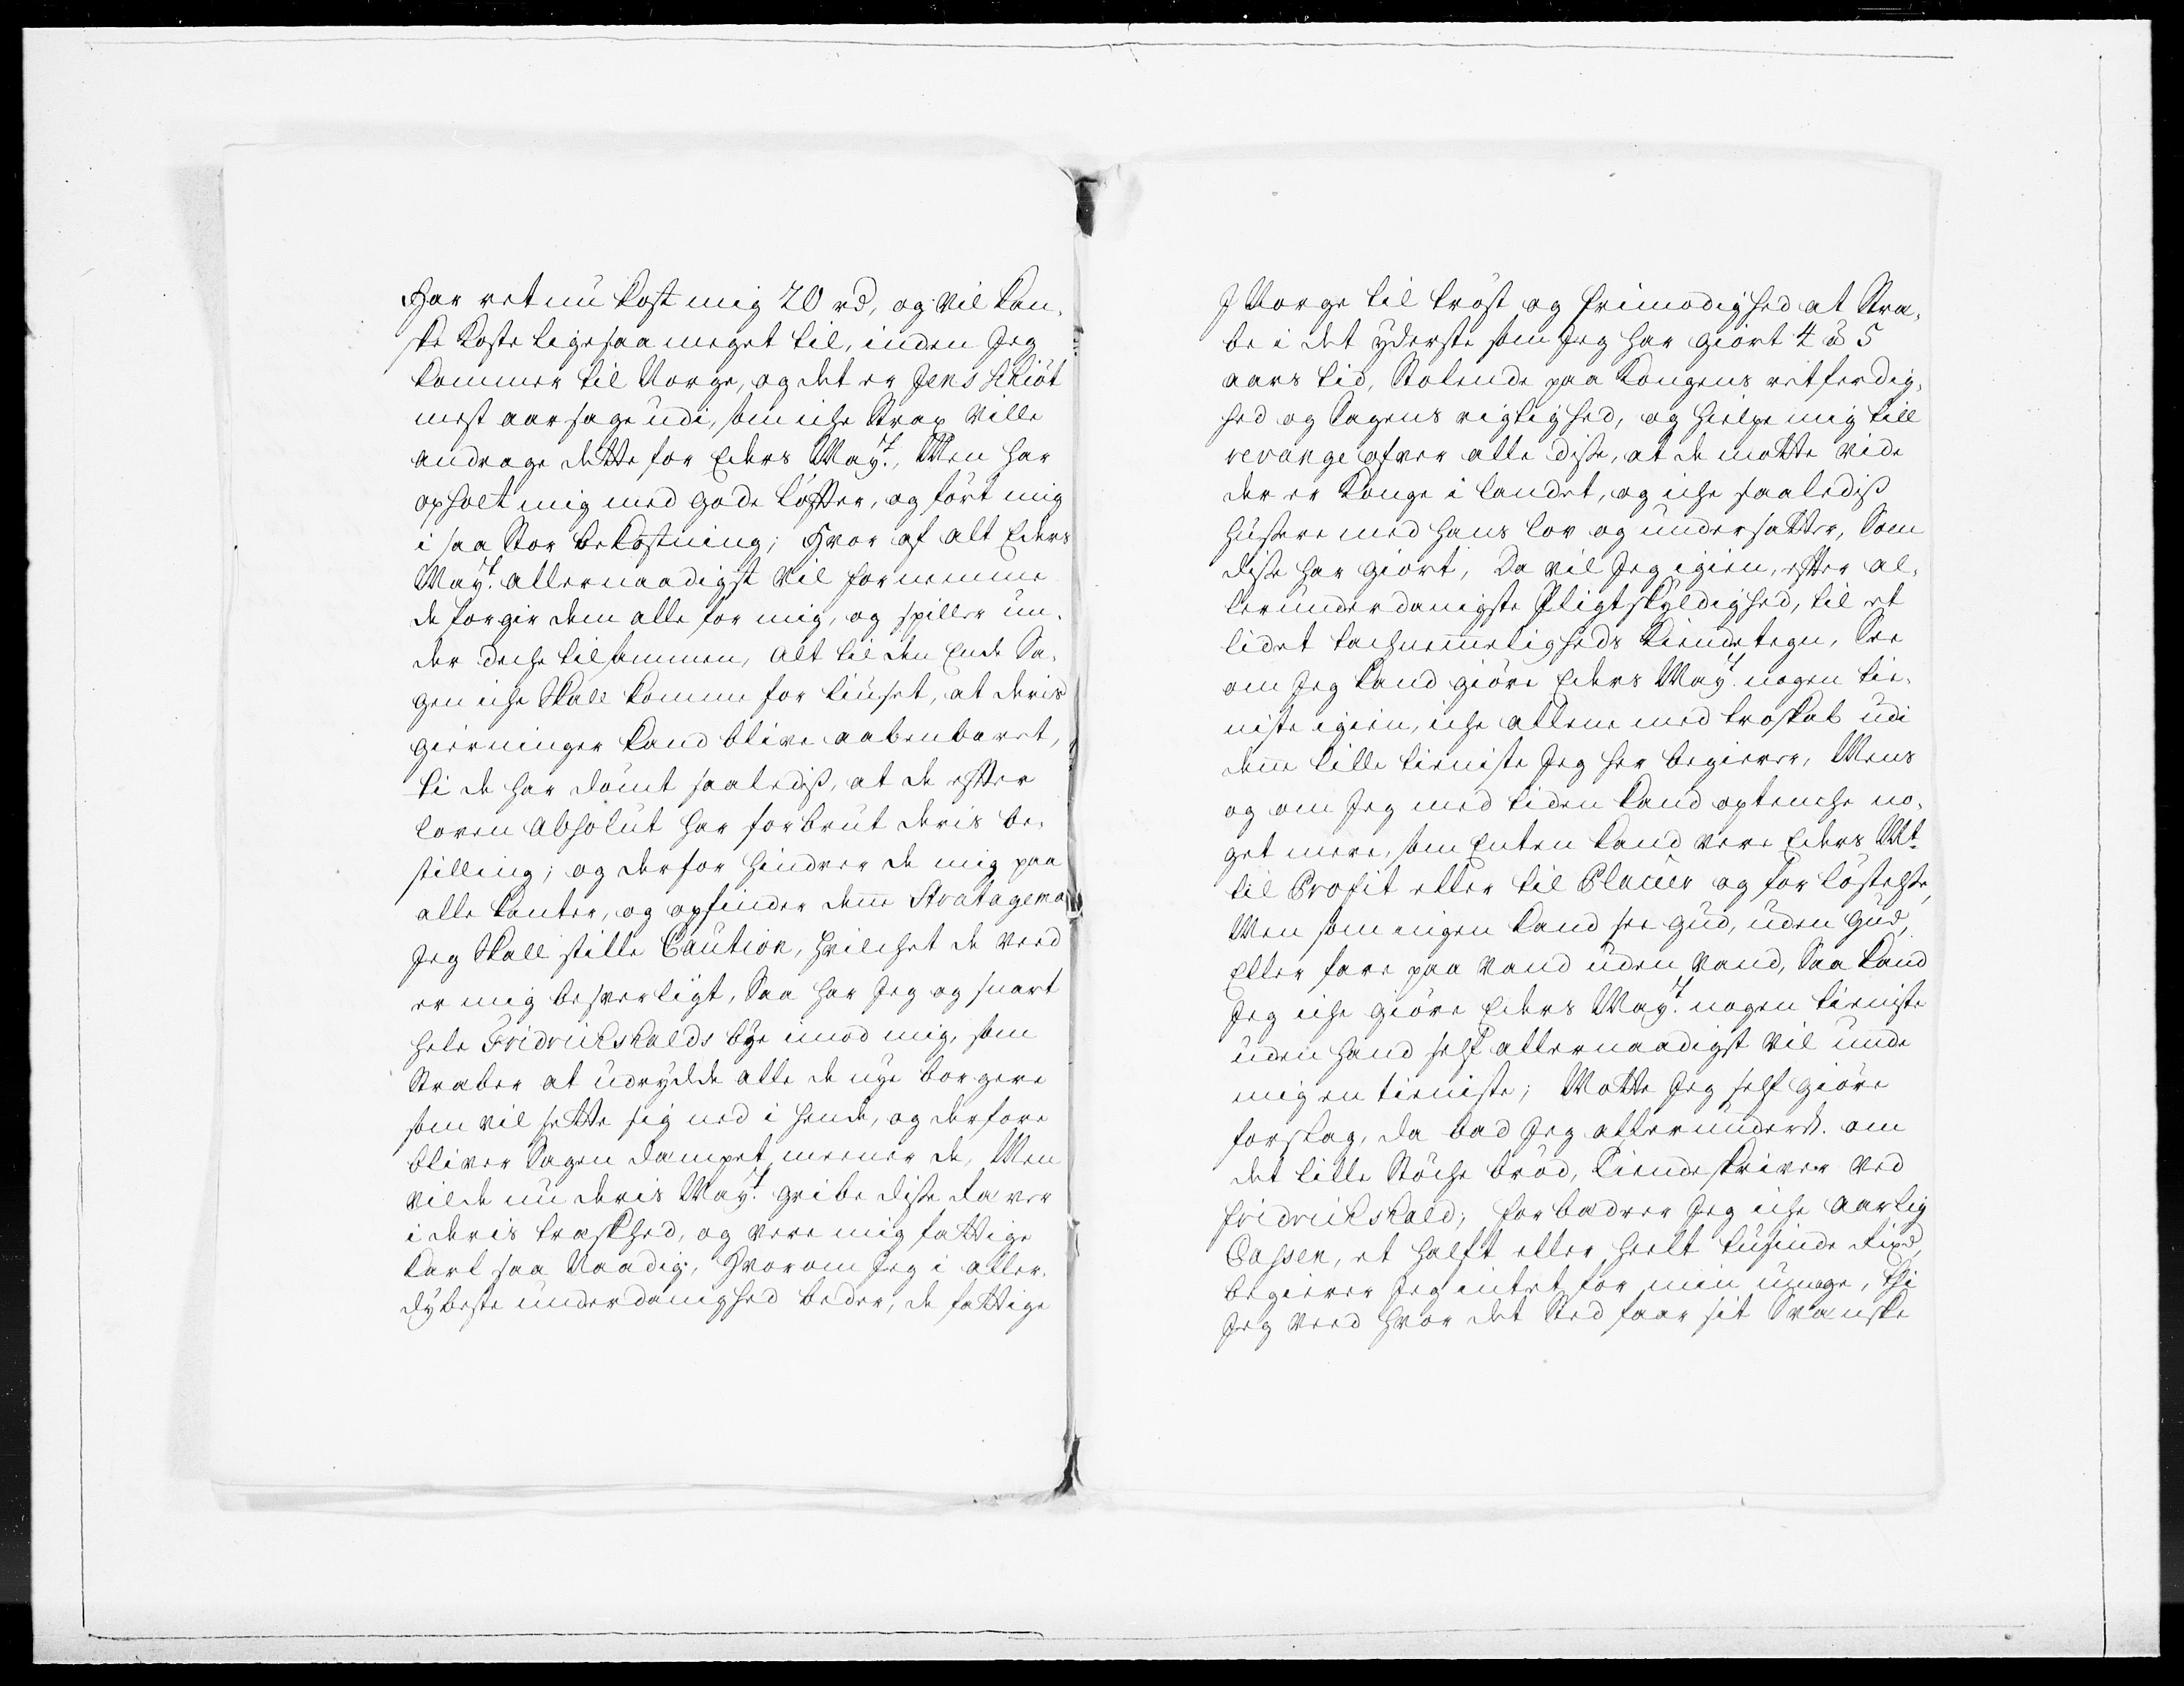 Har ret nu kost mig 20 rd, og vil kan,
ske koste ligesaa meget til, inden Jeg
kommer til Norge, og det er Jens Skiöt
mest aarsage udi, som iche Strax ville
andrage dette for Eders May.t, Men har
opholt mig med gode löffter, og fört mig
i saa Stor bekostning; Hvor af alt Eders
May.t allernaadigst vil fornemme
de forgir dem alle for mig, og spiller un,
der deche tilsammen, alt til den Ende Sa,
gen iche Skall komme for liuset, at deris
gierninger kand blive aabenbaret,
ti de har dömt saalediss, at de effter
loven absolut har forbrut deris be,
stilling; og derfor hindrer de mig paa
alle kanter, og opfinder denne Stratagema
Jeg Skall stille Caution, hvilchet de veed
er mig besverligt, Saa har Jeg og snart
hele Fridrickshalds bye imod mig, som
Straber at udrydde alle de nye borgere
som vil sette sig ned i hende, og derfore
bliver Sagen dampet meener de, Men
vilde nu deris May.t gribe disse Ræver
i deris træskhed, og vere mig fattige
karl saa Naadig, Hvorom Jeg i aller,
dybeste underdanighed beder, de fattige
I Norge til tröst og frimodighed at Stra,
be i det yderste som Jeg har giort 4 à 5
aars tid, Stolende paa kongens retferdig,
hed og Sagens rigtighed, og hielpe mig till
revange ofver alle disse, at de motte vide
der er konge i landet, og iche saalediss
hussere med hans lov og undersatter, Som
disse har giort, Da vil Jeg igien, effter al,
lerunderdanigste Pligtskyldighed, til et
lidet tachnemmeligheds kiendetegn, See
om Jeg kand giöre Eders May.t nogen tie,
niste igien, iche allene med troskab udi
denne lille tieniste Jeg her begierer, Mens
og om Jeg med tiden kand optenche no,
get mere, som Enten kand vere Eders Mt.
til Profit eller til Placier og forlöstelse,
Men som ingen kand see Gud, uden Gud,
Eller fare paa vand uden vand, Saa kand
Jeg iche giöre Eders May.t nogen tieniste
uden hand self allernaadigst vil unde
mig en tieniste; Motte Jeg self giöre
forslag, da bad Jeg allerunderd. om
det lille Stöche bröd, Tiendeskriver ved
Fridrickshald; forbedrer Jeg iche aarlig
Cassen, et halft eller heelt tusinde Rixd,
begierer Jeg intet for min umage, thi
Jeg veed hvor det Sted faar sit Svenske